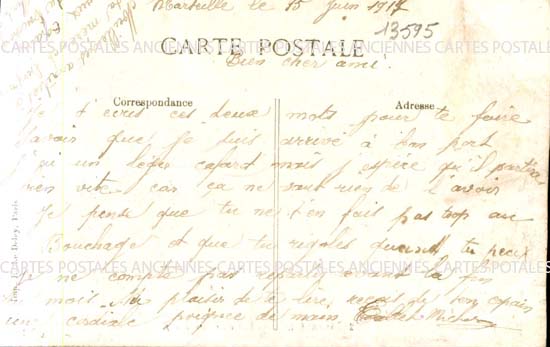 Marseille le 15 juin 1917
13595
CARTE POSTALE
Bien cher ami.
CARTES POSTALES ANCIENNES CARTES POSTALES ANCIENNES
Correspondance
Adresse
Je t'écris ces deux mots pour te faire
savoir que je suis arrivé à bon port
j'ai un léger cafard mais j'espère qu'il partira
bien vite car ça ne vaut rien de l'avoir
Je pense que tu ne t'en fais pas trop au
Bouchage et que tu rigoles quand tu peux
CARTES POSTALES ANCIENNES CARTES POSTALES ANCIENNES
Je ne compte pas avant la fin
mois. Au plaisir de te lire, reçois du bon copain
une cordiale poignée de main.
Paris